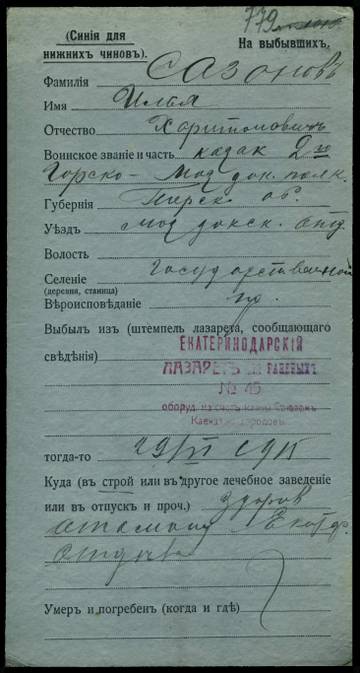 779
(Синія для
нижнихъ чиновъ).
На выбывшихъ.
Фамилія Сазоновъ
Имя Илья
Отчество Харитоновичъ
Воинское званіе и часть казак 2го
Горско-Моздок. полк.
Губернія Терск. об.
Уѣздъ Моздокск. отд.
Волость
Селеніе Государственной
(деревня, станица)
Вѣроисповѣданіе пр.
Выбылъ из (штемпель лазарета, сообщающаго
свѣдѣнія)
ЕКАТЕРИНОДАРСКІЙ
ЛАЗАРЕТЪ РАНЕНЫХЪ
№ 45
оборуд. на счетъ Союзомъ
городовъ
тогда-то 29/VI 915
Куда (въ строй или въ другое лечебное заведеніе
или въ отпускъ и проч.) здоров
атаману Екатер.
отдѣла
Умеръ и погребенъ (когда и гдѣ)